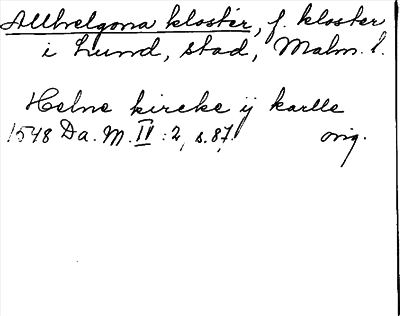 Allhelgona kloster, f. kloster
i Lund, stad, Malm. l.
Helne kircke ij karlle
1548 Da. M. IV : 2, s. 87. orig.